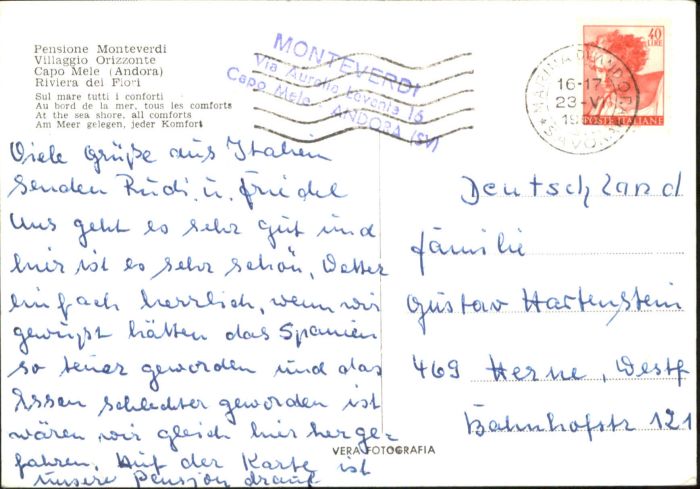 Pensione Monteverdi
Villaggio Orizzonte
Capo Mele (Andora)
Riviera dei Fiori
Sul mare tutti i conforti
Au bord de la mer, tous les comforts
At the sea shore, all comforts
Am Meer gelegen, jeder Komfort
MONTEVERDI
Via Aurelia Levante 16
Capo Mele - ANDORA (SV)
40
LIRE
POSTE ITALIANE
MARINA D'ANDORA
16-17
23-V
19
* SAVONA
Viele Grüße aus Italien
senden Rudi u. Friedel
Uns geht es sehr gut und
hier ist es sehr schön, Wetter
einfach herrlich, wenn wir
gewußt hätten das Spanien
so teuer geworden und das
Essen schlechter geworden ist
wären wir gleich hier herge-
fahren. Auf der Karte ist
unsere Pension drauf
Deutschland
Familie
Gustav Hartenstein
469 Herne, Westf
Bahnhofstr 121
VERA FOTOGRAFIA